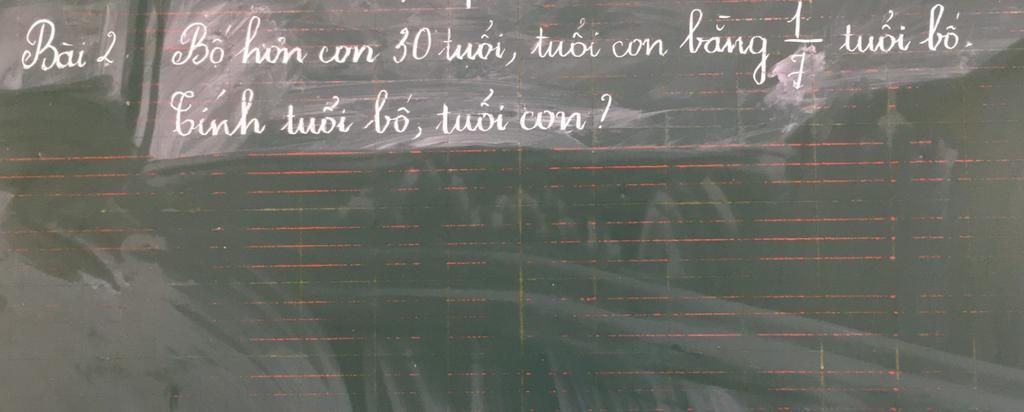 Bài 2 Bố hơn con 30 tuổi, tuổi con bằng 1/7 tuổi bố.
Tính tuổi bố, tuổi con?